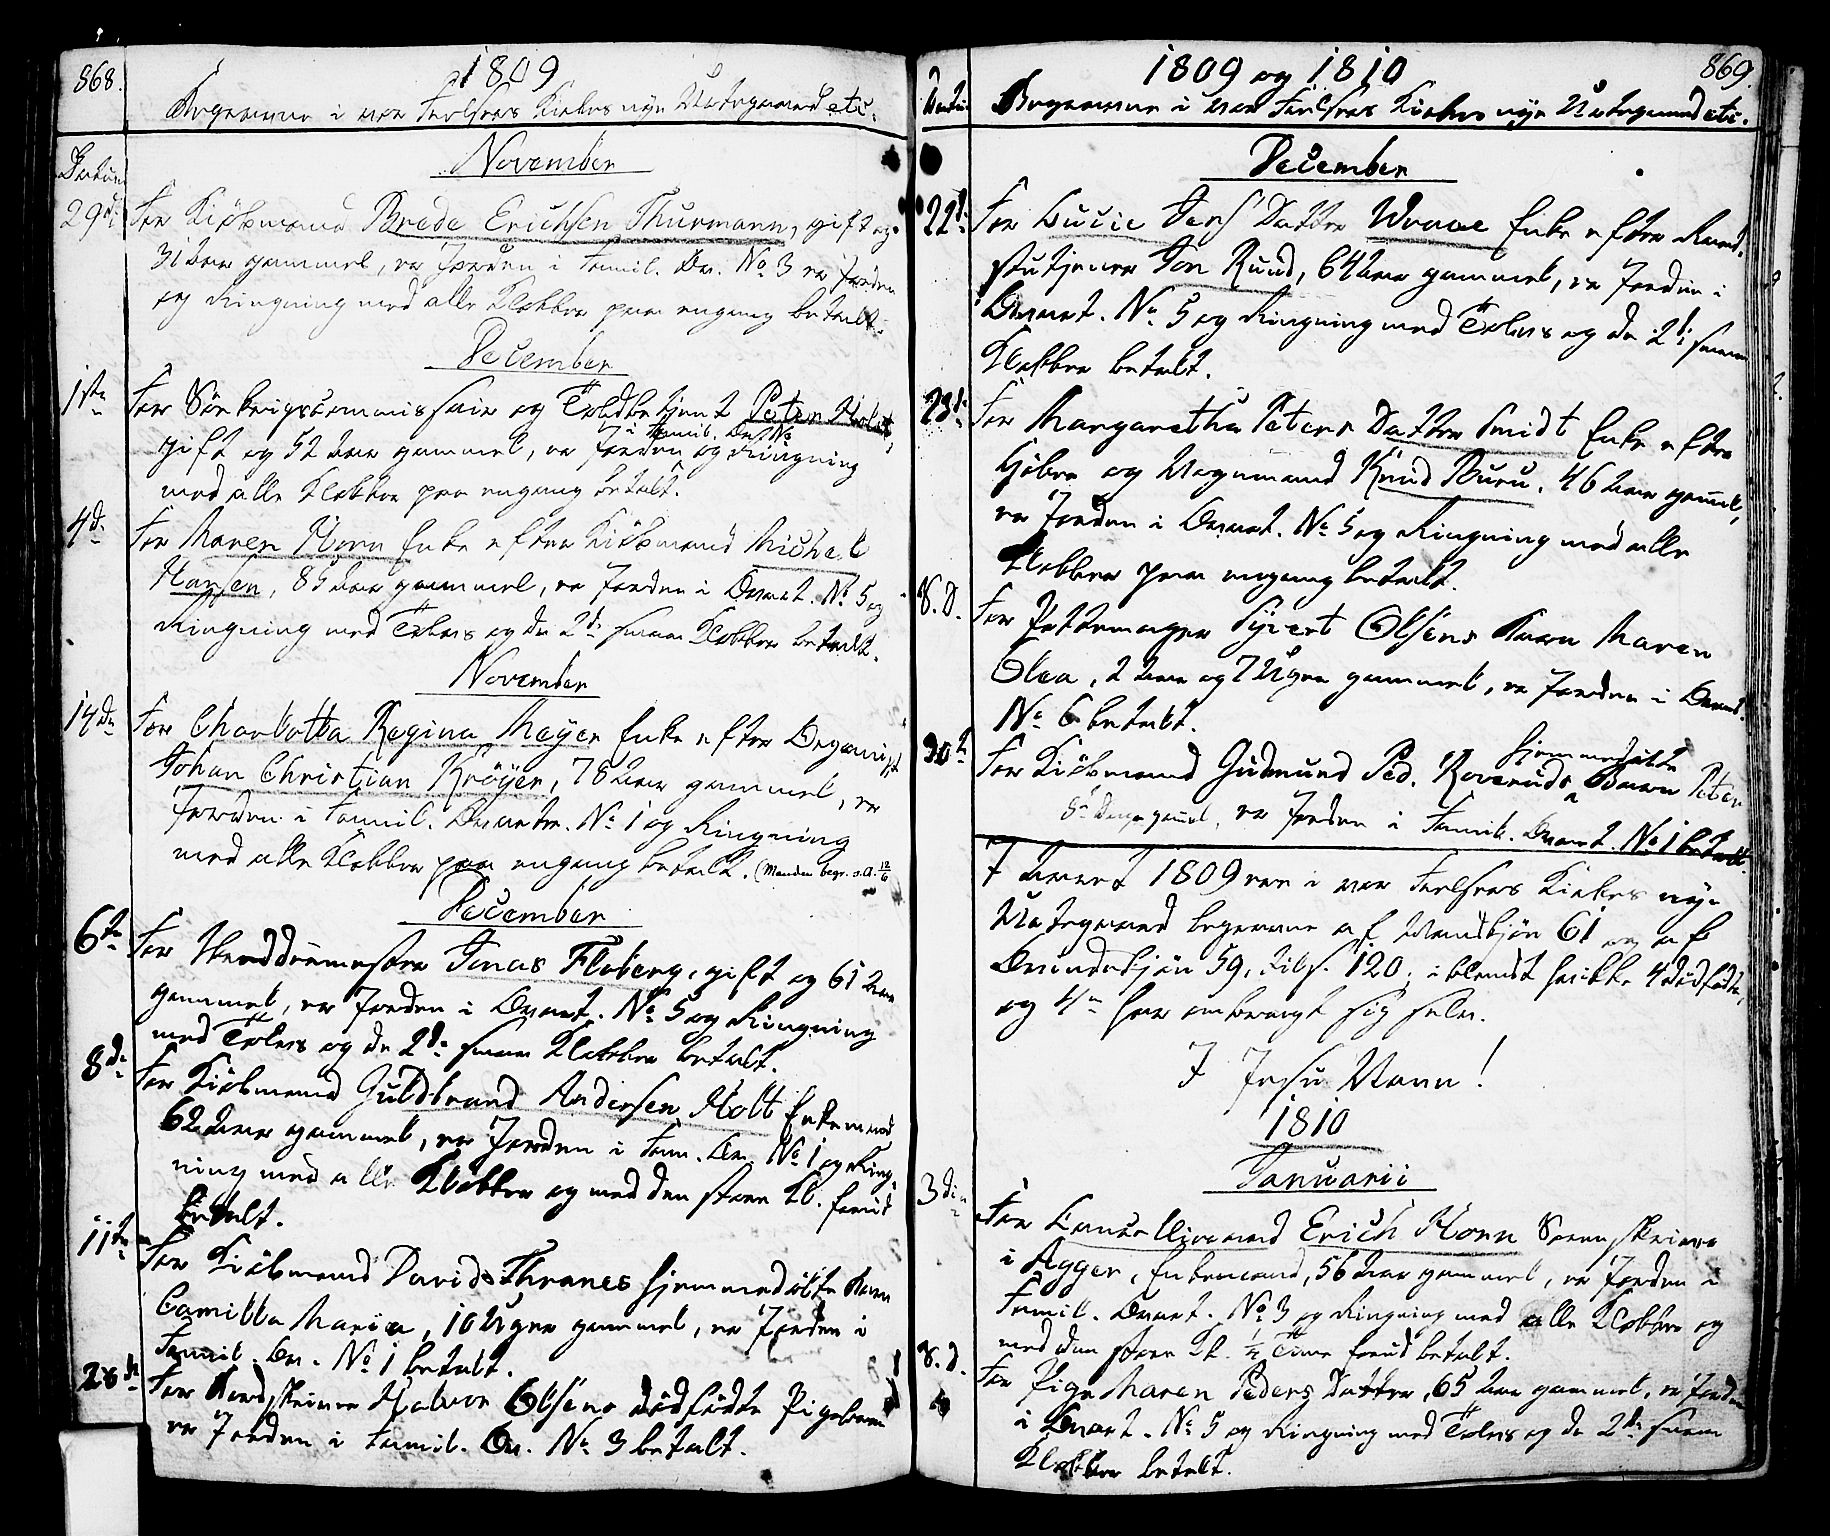 868.
1809
Begravne i vor Frelsers Kirkes nye Urtegaard etc.
Datum
November
29de
For Kiöbmand Brede Erichsen Thurmann, gift og
31 Aar gammel, er Jorden i Famil. Qv. No 3 er Jorden
og Ringning med alle Klokker paa engang betalt.
December
1ste
For Söekrigscommissair og Toldbetjent Peter Holst,
i Famil. Qv. No
gift og 52 Aar gammel, er Jorden og Ringning
med alle Klokker paa engang betalt.
4de
For Maren Horn Enke efter Kiöbmand Michael
Hansen, 85 Aar gammel, er Jorden i Qvart. No 5 og
Ringning med Tolvs og de 2de smaae Klokker betalt.
November
14de
For Charlotta Regina Meyer Enke efter Organist
Johan Christian Kröyer, 78 Aar gammel, er
Jorden i Famil. Qvarter. No 1 og Ringning
med alle Klokker paa engang betalt. (Manden begr. s.A. 12/6
December
6te
For Jonas Floberg, gift og 61 Aar
gammel, er Jorden i Qvart. No 5 og Ringning
med Tolvs og de 2de smaae Klokker betalt.
8de
For Kiöbmand Guldbrand Andersen Holt Enkemand
62 Aar gammel, er Jorden i Fam. Qv. No 1 og Ring-
ning med alle Klokker og med den store Kl. forud
betalt.
11te
For Kiöbmand Davids Thranes hjemmedöbte Barn
Camilla Maria, 10 Uger gammel, er Jorden i
Famil. Qv. No 1 betalt.
28de
For Halvor Olsens dödfödte Pigebarn
er Jorden i Famil. Qv. No 3 betalt.
1809 og 1810
869.
Datum
Begravne i vor Frelsers Kirkes nye Urtegaard etc.
December
22de
For Lucie Jens Datter Wraae Enke efter Raad-
stutjener Jon Rund, 64 Aar gammel, er Jorden i
Qvart. No 5 og Ringning med Tolvs og de 2de smaae
Klokker betalt.
23de
For Margaretha Peters Datter Smidt Enke efter
og Vognmand Knud Buru, 46 Aar gammel,
er Jorden i Qvart. No 5 og Ringning med alle
Klokker paa engang betalt.
8. D.
For Pottemager Syvert Olsens Barn Maren
Olea, 2 Aar og 7 Uger gammel, er Jorden i Qvart.
No 6 betalt.
30te
hjemmedöbte
For Kiöbmand Gudmund Ped. Roveruds Barn Peter
8 Dage gammel, er Jorden i Famil. Qvart. No 1 betalt.
I Aaret 1809 ere i vor Frelsers Kirkes nye
Urtegaard begravne af Mandkjön 61 og af
Qvindekjön 59, tils. 120; iblandt hvilke 4 dödfödte,
og 4re har ombragt sig selv.
I Jesu Navn!
1810
Januarii
3die
For Cancelliraad Erich Horn Sorenskriver
i Agger, Enkemand, 56 Aar gammel, er Jorden i
Famil. Qvart. No 3 og Ringning med alle Klokker og
med den store Kl. 1/2 Time forud betalt.
8. D.
For Pige Maren Peders Datter, 65 Aar gammel, er Jorden
i Qvart. No 5 og Ringning med Tolvs og de 2de smaae
Klokker betalt.